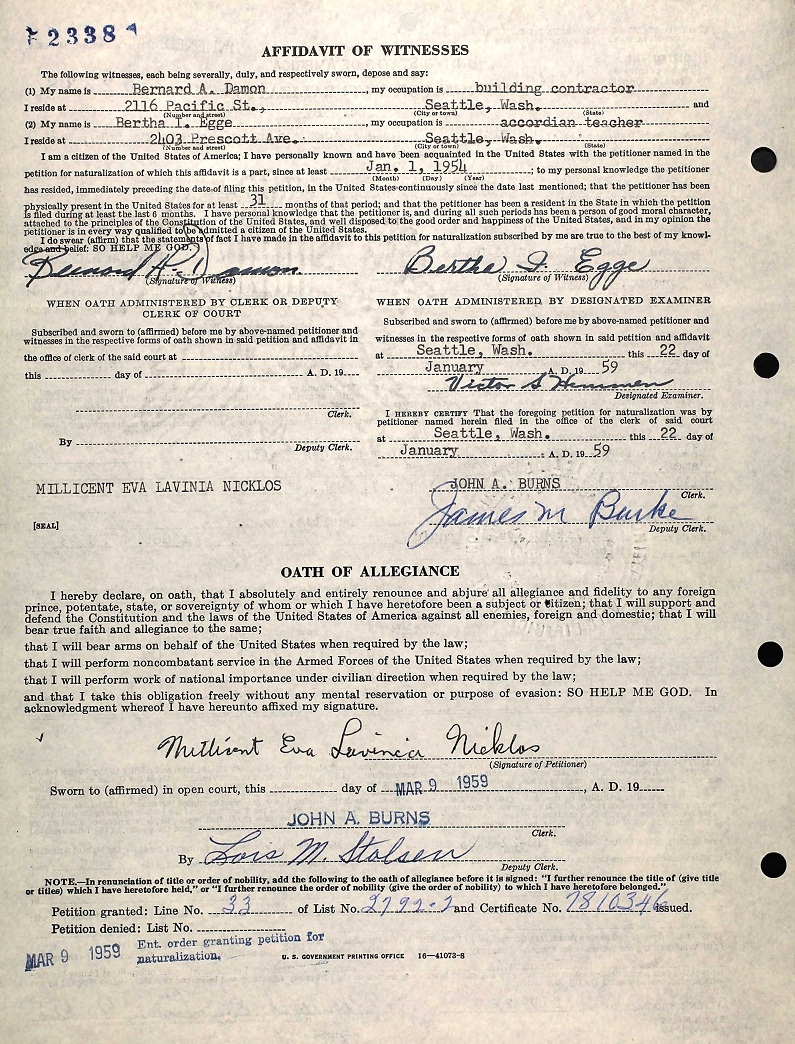 72338
AFFIDAVIT OF WITNESSES
The following witnesses, each being severally, duly, and respectively sworn, depose and say:
(1) My name is Bernard A. Damon, my occupation is building contractor
I reside at 2116 Pacific St., Seattle, Wash. and
(Number and street) (City or town) (State)
(2) My name is Bertha I. Egge, my occupation is accordian teacher
I reside at 2403 Prescott Ave. Seattle, Wash.
(Number and street) (City or town) (State)
I am a citizen of the United States of America; I have personally known and have been acquainted in the United States with the petitioner named in the
petition for naturalization of which this affidavit is a part, since at least Jan. 1, 1954; to my personal knowledge the petitioner
(Month) (Day) (Year)
has resided, immediately preceding the date of filing this petition, in the United States continuously since the date last mentioned; that the petitioner has been
physically present in the United States for at least 31 months of that period; and that the petitioner has been a resident of the State in which the petition
is filed during at least the last 6 months. I have personal knowledge that the petitioner is, and during all such periods has been a person of good moral character,
attached to the principles of the Constitution of the United States, and well disposed to the good order and happiness of the United States, and in my opinion the
petitioner is in every way qualified to be admitted a citizen of the United States.
I do swear (affirm) that the statements of fact I have made in the affidavit to this petition for naturalization subscribed by me are true to the best of my knowl-
edge and belief: SO HELP ME GOD.
Bernard A. Damon Bertha I. Egge
(Signature of Witness) (Signature of Witness)
WHEN OATH ADMINISTERED BY CLERK OR DEPUTY
CLERK OF COURT
Subscribed and sworn to (affirmed) before me by above-named petitioner and
witnesses in the respective forms of oath shown in said petition and affidavit in
the office of clerk of the said court at
this day of A. D. 19
Clerk.
By
Deputy Clerk.
WHEN OATH ADMINISTERED BY DESIGNATED EXAMINER
Subscribed and sworn to (affirmed) before me by above-named petitioner and
witnesses in the respective forms of oath shown in said petition and affidavit
at Seattle, Wash. this 22 day of
January A. D. 19 59
Victor S
Designated Examiner.
I HEREBY CERTIFY That the foregoing petition for naturalization was by
petitioner named herein filed in the office of the clerk of said court
at Seattle, Wash. this 22 day of
January A. D. 19 59
MILLICENT EVA LAVINIA NICKLOS
[SEAL]
JOHN A. BURNS
Clerk.
James M Burke
Deputy Clerk.
OATH OF ALLEGIANCE
I hereby declare, on oath, that I absolutely and entirely renounce and abjure all allegiance and fidelity to any foreign
prince, potentate, state, or sovereignty of whom or which I have heretofore been a subject or citizen; that I will support and
defend the Constitution and the laws of the United States of America against all enemies, foreign and domestic; that I will
bear true faith and allegiance to the same;
that I will bear arms on behalf of the United States when required by the law;
that I will perform noncombatant service in the Armed Forces of the United States when required by the law;
that I will perform work of national importance under civilian direction when required by the law;
and that I take this obligation freely without any mental reservation or purpose of evasion: SO HELP ME GOD. In
acknowledgment whereof I have hereunto affixed my signature.
Millicent Eva Lavinia Nicklos
(Signature of Petitioner)
Sworn to (affirmed) in open court, this day of MAR 9 1959, A. D. 19
JOHN A. BURNS
Clerk.
By Lois M. Stolsen
Deputy Clerk.
NOTE.—In renunciation of title or order of nobility, add the following to the oath of allegiance before it is signed: "I further renounce the title of (give title
or titles) which I have heretofore held," or "I further renounce the order of nobility (give the order of nobility) to which I have heretofore belonged."
Petition granted: Line No. 33 of List No. 2792-2 and Certificate No. 7810346 issued.
Petition denied: List No.
MAR 9 1959 Ent. order granting petition for
naturalization.
U. S. GOVERNMENT PRINTING OFFICE 16—41073-8